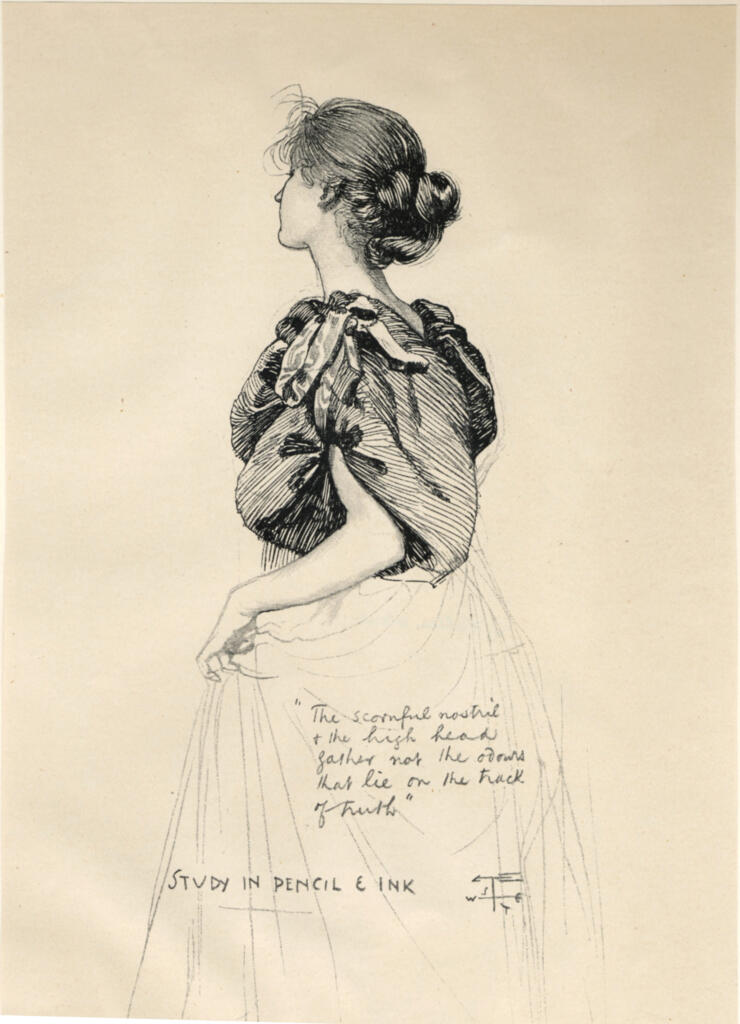 "The scornful nostril
& the high head
gather not the odours
that lie on the track
of truth"
STUDY IN PENCIL & INK
W E